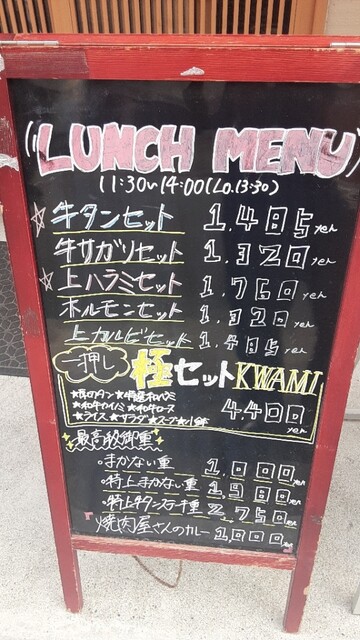 LUNCH MENU
11:30~14:00(L.o.13:30)
☆牛タンセット 1.485yen
牛サガリセット 1.320yen
☆上ハラミセット 1.760yen
ホルモンセット 1.320yen
上カルビセット 1.485yen
一押し 極セットKWAMI
4400yen
★ライス★サラダ★スープ★小鉢
最高級御重
。まかない重 1.000yen
。特上まかない重 1980yen
。特上牛タンステーキ重 2.750yen
焼肉屋さんのカレー 1000yen